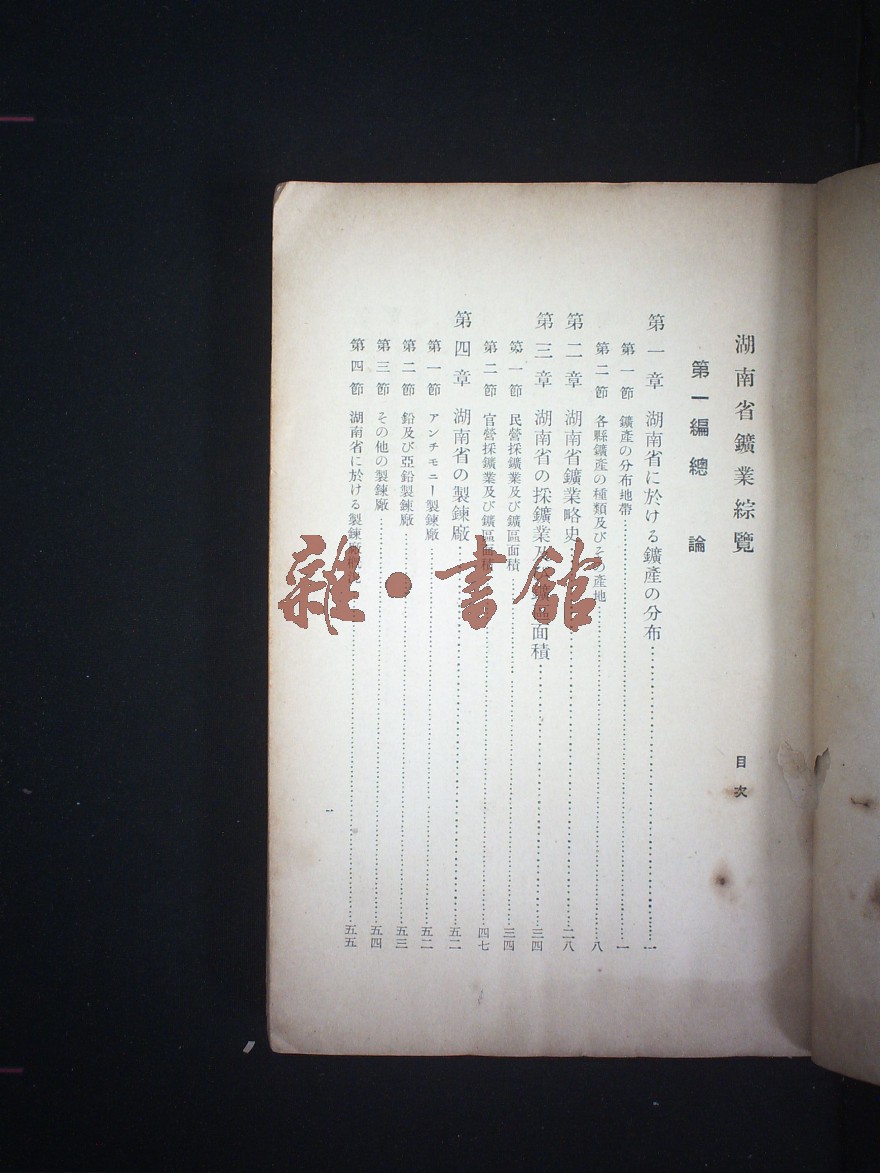 湖南省鑛業綜覽 目次
第一編 總論
第一章 湖南省に於ける鑛產の分布……一
第一節 鑛產の分布地帶……一
第二節 各縣鑛產の種類及びその產地……八
第二章 湖南省鑛業略史……二八
第三章 湖南省の採鑛業及び鑛區面積……三四
第一節 民營採鑛業及び鑛區面積……三四
第二節 官營採鑛業及び鑛區面積……四七
第四章 湖南省の製鍊廠……五二
第一節 アンチモニー製鍊廠……五二
第二節 鉛及び亞鉛製鍊廠……五三
第三節 その他の製鍊廠……五四
第四節 湖南省に於ける製鍊廠……五五
一
雜·書館